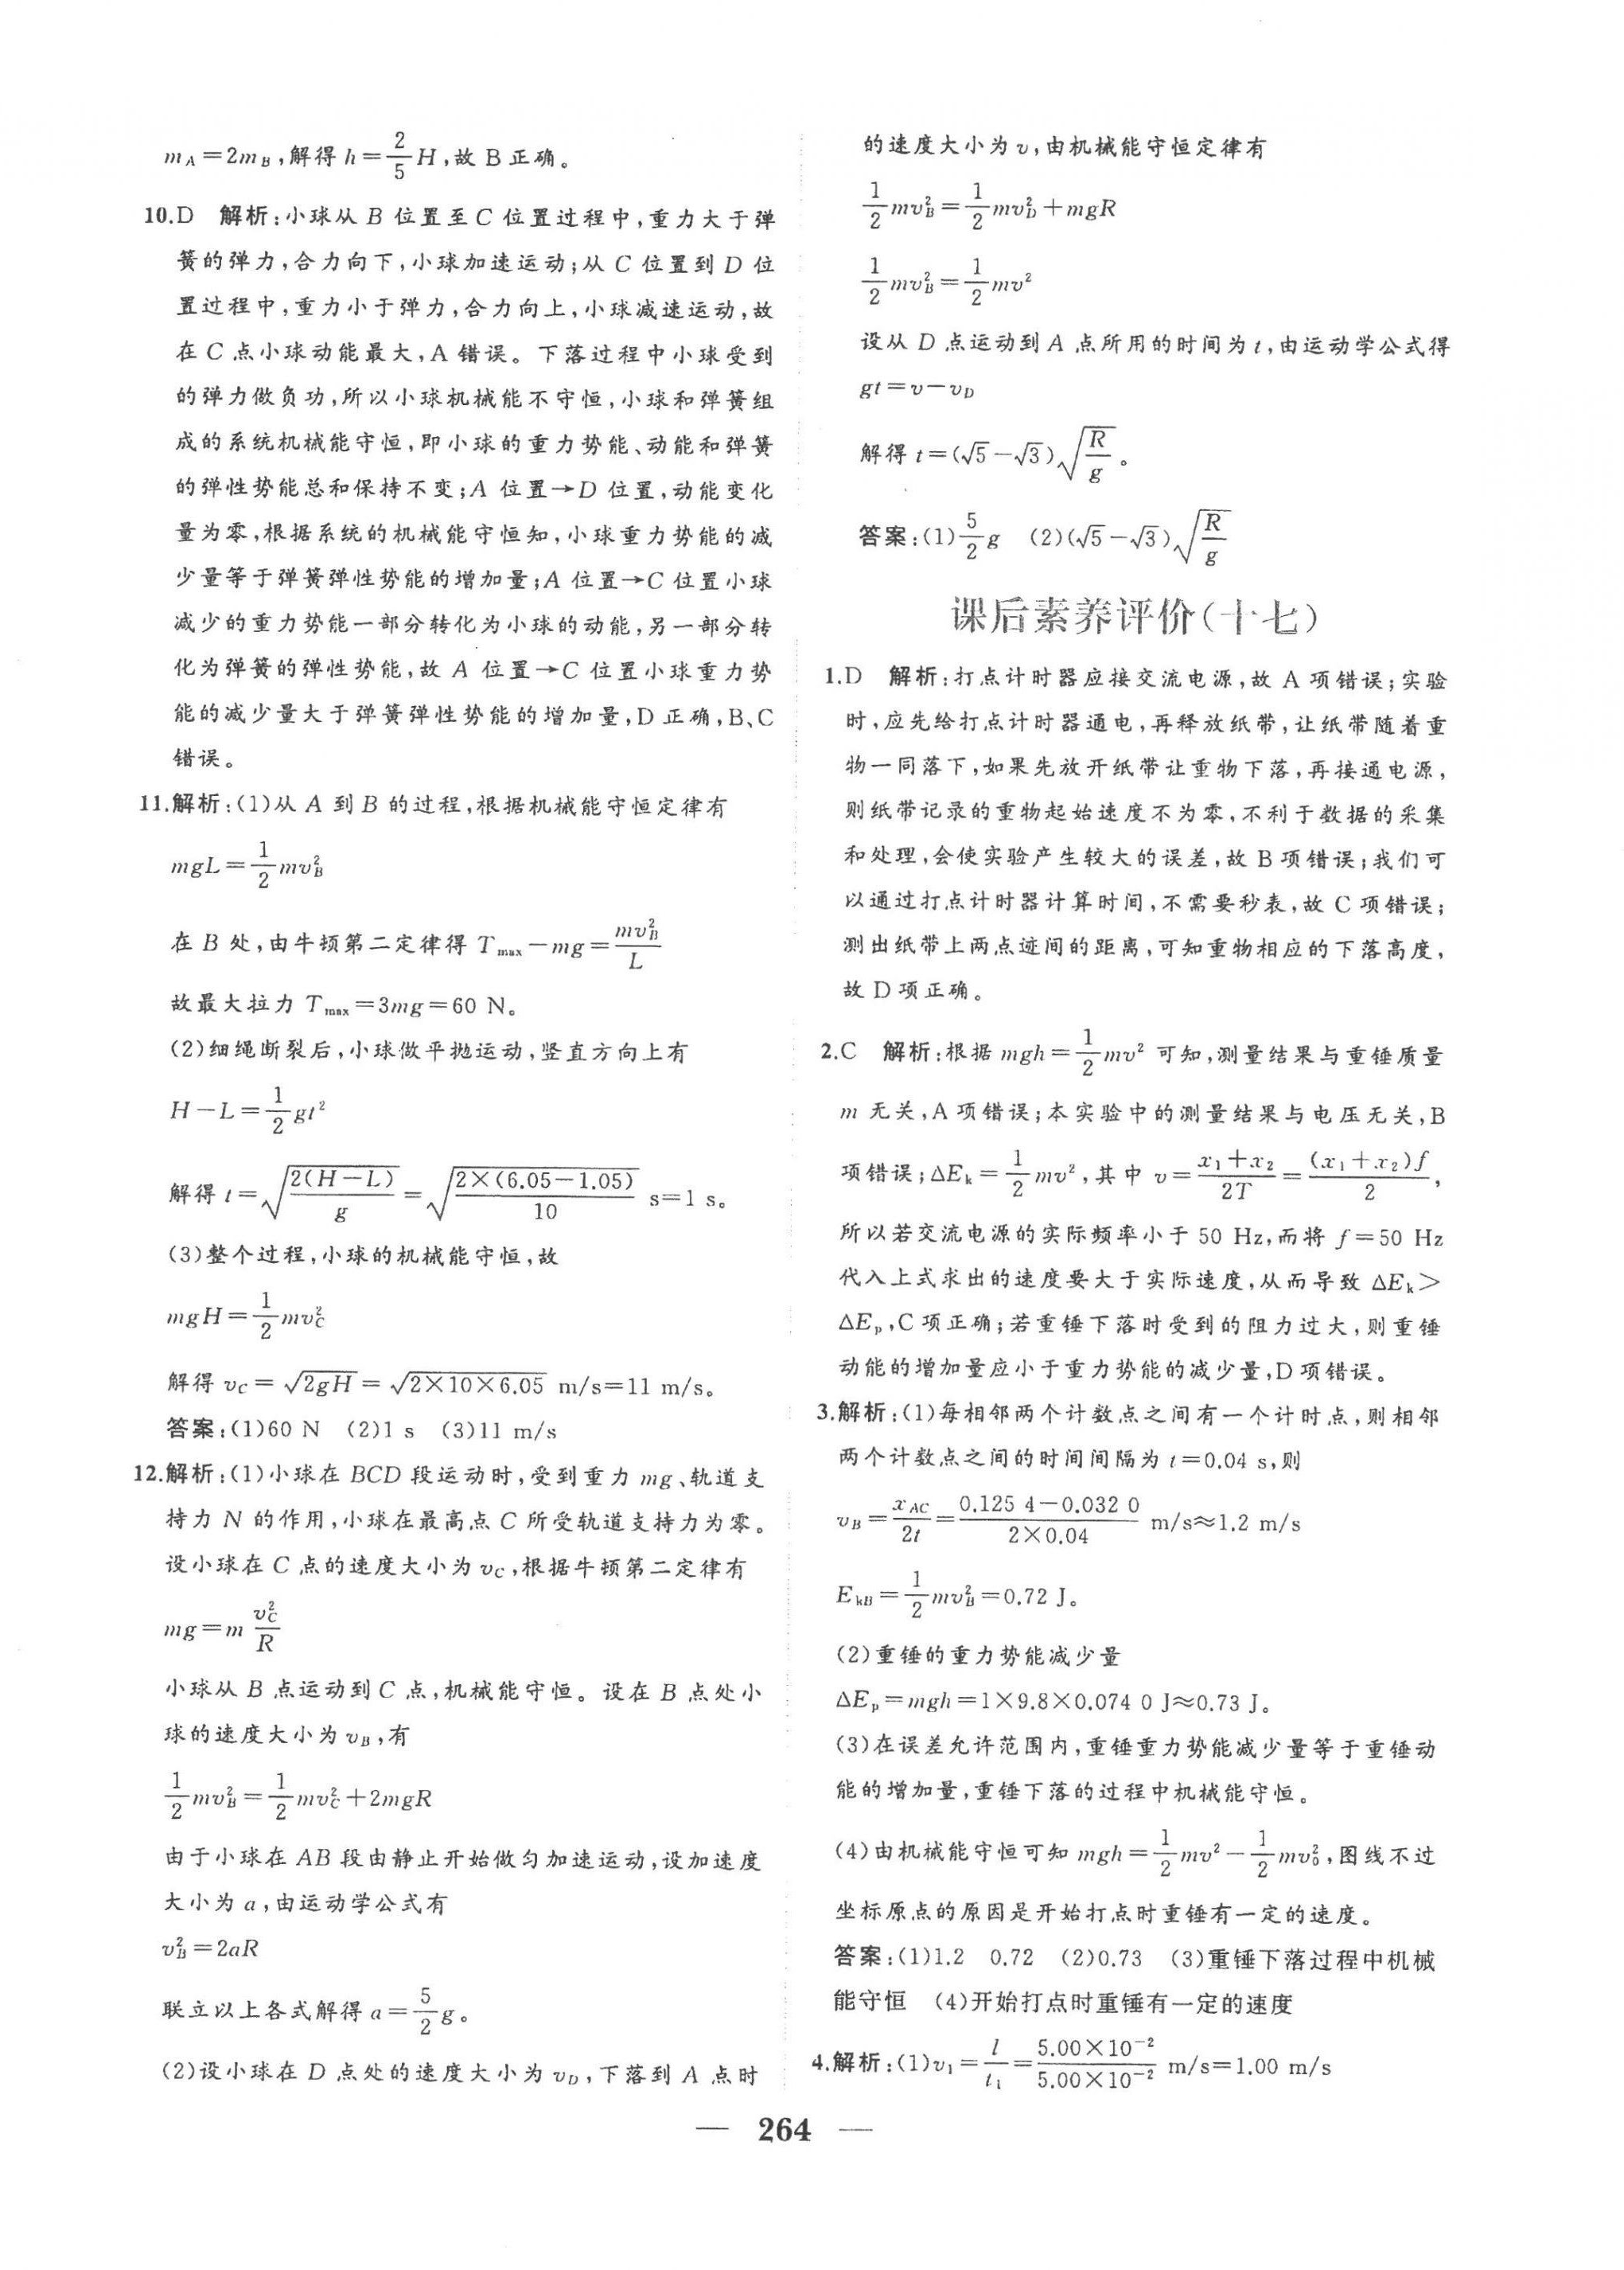 m_A=2m_B,解得 h=2/5 H,故 B 正确。
10.D 解析:小球从 B 位置至 C 位置过程中,重力大于弹
簧的弹力,合力向下,小球加速运动;从 C 位置到 D 位
置过程中,重力小于弹力,合力向上,小球减速运动,故
在 C 点小球动能最大,A 错误。下落过程中小球受到
的弹力做负功,所以小球机械能不守恒,小球和弹簧组
成的系统机械能守恒,即小球的重力势能、动能和弹簧
的弹性势能总和保持不变;A 位置→D 位置,动能变化
量为零,根据系统的机械能守恒知,小球重力势能的减
少量等于弹簧弹性势能的增加量;A 位置→C 位置小球
减少的重力势能一部分转化为小球的动能,另一部分转
化为弹簧的弹性势能,故 A 位置→C 位置小球重力势
能的减少量大于弹簧弹性势能的增加量,D 正确,B、C
错误。
11.解析:(1)从 A 到 B 的过程,根据机械能守恒定律有
mgL=1/2 mv_B²
在 B 处,由牛顿第二定律得 T_max-mg=mv_B²/L
故最大拉力 T_max=3mg=60 N。
(2)细绳断裂后,小球做平抛运动,竖直方向上有
H-L=1/2 gt²
解得 t=√(2(H-L)/g)=√(2×(6.05-1.05)/10) s=1 s。
(3)整个过程,小球的机械能守恒,故
mgH=1/2 mv_C²
解得 v_C=√(2gH)=√(2×10×6.05) m/s=11 m/s。
答案:(1)60 N (2)1 s (3)11 m/s
12.解析:(1)小球在 BCD 段运动时,受到重力 mg、轨道支
持力 N 的作用,小球在最高点 C 所受轨道支持力为零。
设小球在 C 点的速度大小为 v_C,根据牛顿第二定律有
mg=m v_C²/R
小球从 B 点运动到 C 点,机械能守恒。设在 B 点处小
球的速度大小为 v_B,有
1/2 mv_B²=1/2 mv_C²+2mgR
由于小球在 AB 段由静止开始做匀加速运动,设加速度
大小为 a,由运动学公式有
v_B²=2aR
联立以上各式解得 a=5/2 g。
(2)设小球在 D 点处的速度大小为 v_D,下落到 A 点时
的速度大小为 v,由机械能守恒定律有
1/2 mv_B²=1/2 mv_D²+mgR
1/2 mv_B²=1/2 mv²
设从 D 点运动到 A 点所用的时间为 t,由运动学公式得
gt=v-v_D
解得 t=(√5-√3)√(R/g)。
答案:(1)5/2 g (2)(√5-√3)√(R/g)
课后素养评价(十七)
1.D 解析:打点计时器应接交流电源,故 A 项错误;实验
时,应先给打点计时器通电,再释放纸带,让纸带随着重
物一同落下,如果先放开纸带让重物下落,再接通电源,
则纸带记录的重物起始速度不为零,不利于数据的采集
和处理,会使实验产生较大的误差,故 B 项错误;我们可
以通过打点计时器计算时间,不需要秒表,故 C 项错误;
测出纸带上两点迹间的距离,可知重物相应的下落高度,
故 D 项正确。
2.C 解析:根据 mgh=1/2 mv² 可知,测量结果与重锤质量
m 无关,A 项错误;本实验中的测量结果与电压无关,B
项错误;ΔE_k=1/2 mv²,其中 v=(x₁+x₂)/2T=(x₁+x₂)f/2,
所以若交流电源的实际频率小于 50 Hz,而将 f=50 Hz
代入上式求出的速度要大于实际速度,从而导致 ΔE_k>
ΔE_p,C 项正确;若重锤下落时受到的阻力过大,则重锤
动能的增加量应小于重力势能的减少量,D 项错误。
3.解析:(1)每相邻两个计数点之间有一个计时点,则相邻
两个计数点之间的时间间隔为 t=0.04 s,则
v_B=x_AC/2t=(0.125 4-0.032 0)/(2×0.04) m/s≈1.2 m/s
E_kB=1/2 mv_B²=0.72 J。
(2)重锤的重力势能减少量
ΔE_p=mgh=1×9.8×0.074 0 J≈0.73 J。
(3)在误差允许范围内,重锤重力势能减少量等于重锤动
能的增加量,重锤下落的过程中机械能守恒。
(4)由机械能守恒可知 mgh=1/2 mv²-1/2 mv₀²,图线不过
坐标原点的原因是开始打点时重锤有一定的速度。
答案:(1)1.2 0.72 (2)0.73 (3)重锤下落过程中机械
能守恒 (4)开始打点时重锤有一定的速度
4.解析:(1)v₁=l/t₁=(5.00×10⁻²)/(5.00×10⁻²) m/s=1.00 m/s
— 264 —